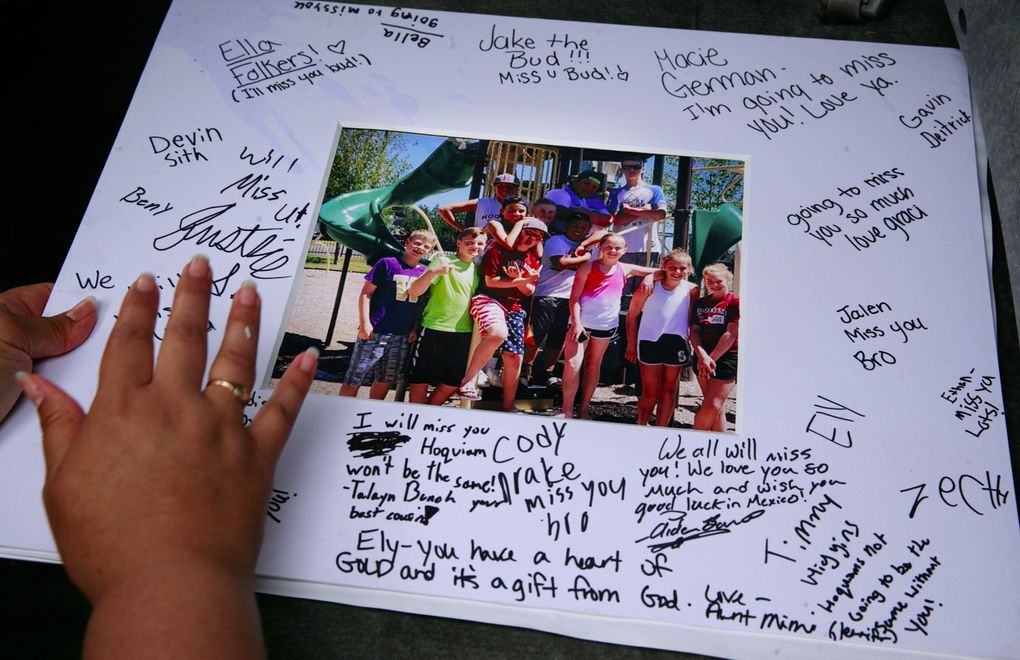 Bella
going to miss you
Ella
Falkers!
(I'll miss you bud!)
Jake the
Bud!!!
Miss u Bud!
Macie
German-
I'm going to miss
you! Love ya.
Gavin
Deitrick
Devin
Sith
Will
Miss
U!
Beny
Justice
We
going to miss
you so much
love graci
Jalen
Miss you
Bro
Ethan-
Miss Ya
Lots!
Ely
I will miss you
Hoquiam
won't be the same!
-Talayn Bunch your
best cousin
Cody
Drake
miss you
bro
We all will miss
you! We love you so
much and wish you
good luck in Mexico!
Aiden
Zech
Timmy
Higgins
Hoquiams not
Going to be the
same without
you!
Ely-you have a heart of
GOLD and it's a gift from God. Love-
Aunt Mimi